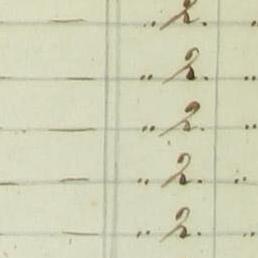 — " 2. "
— " 2. "
— " 2. "
— " 2. "
— " 2. "